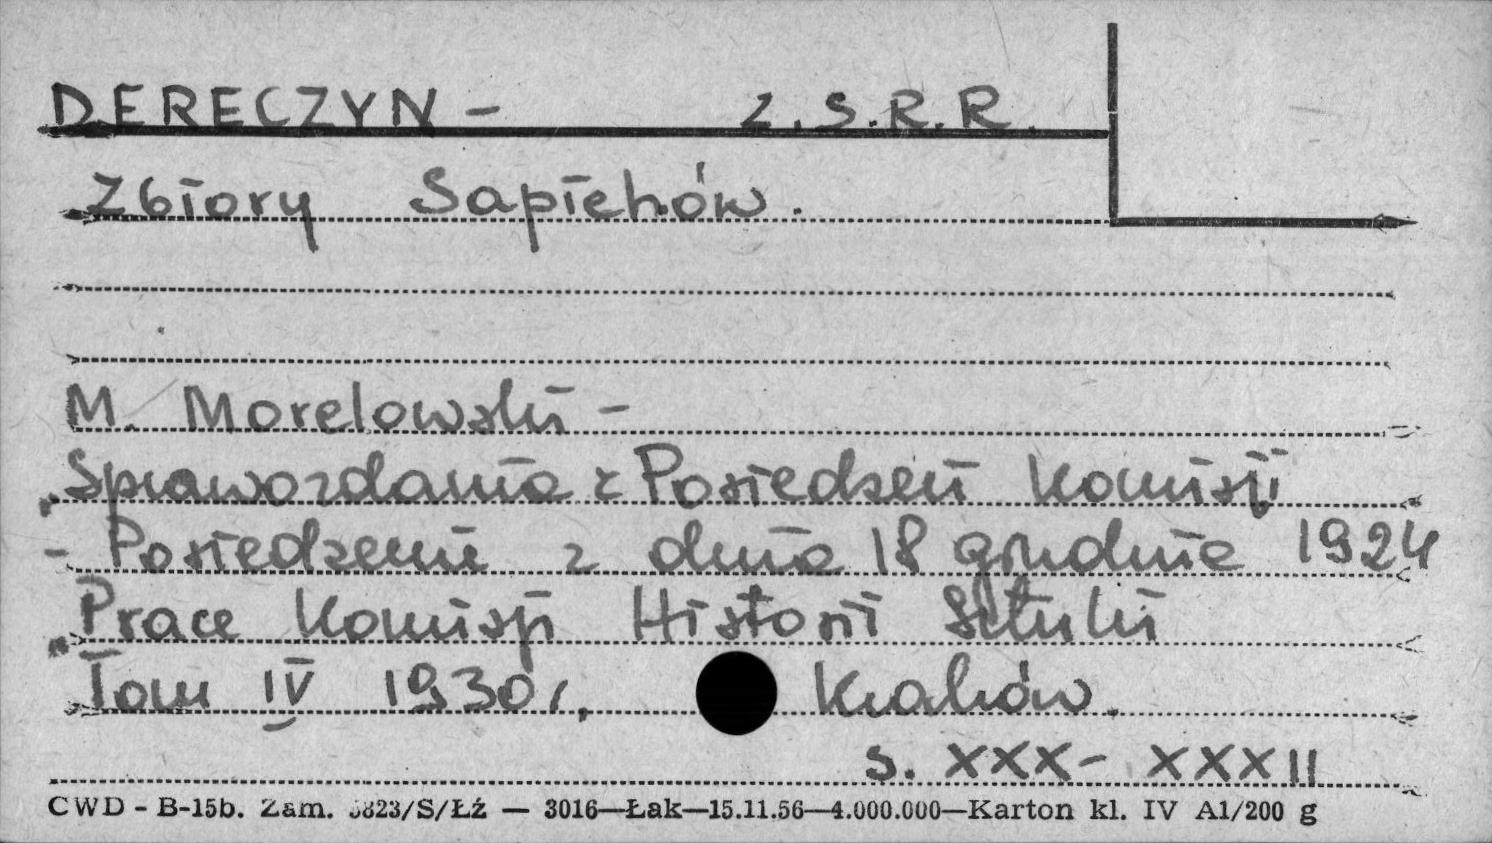 DERECZYN - Z.S.R.R.
Zbiory Sapiehów.
M. Morelowski -
Sprawozdania z Posiedzeń Komisji
- Posiedzenie z dnia 18 grudnia 1924
Prace Komisji Historii Sztuki
Tom IV 1930 r. Kraków.
s. XXX - XXXII
CWD - B-15b. Zam. 5823/S/Łź — 3016—Łak—15.11.56—4.000.000—Karton kl. IV A1/200 g